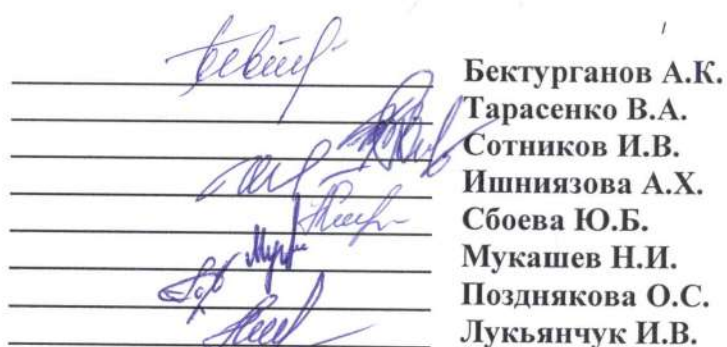 Бектурганов А.К.
Тарасенко В.А.
Сотников И.В.
Ишниязова А.Х.
Сбоева Ю.Б.
Мукашев Н.И.
Позднякова О.С.
Лукьянчук И.В.